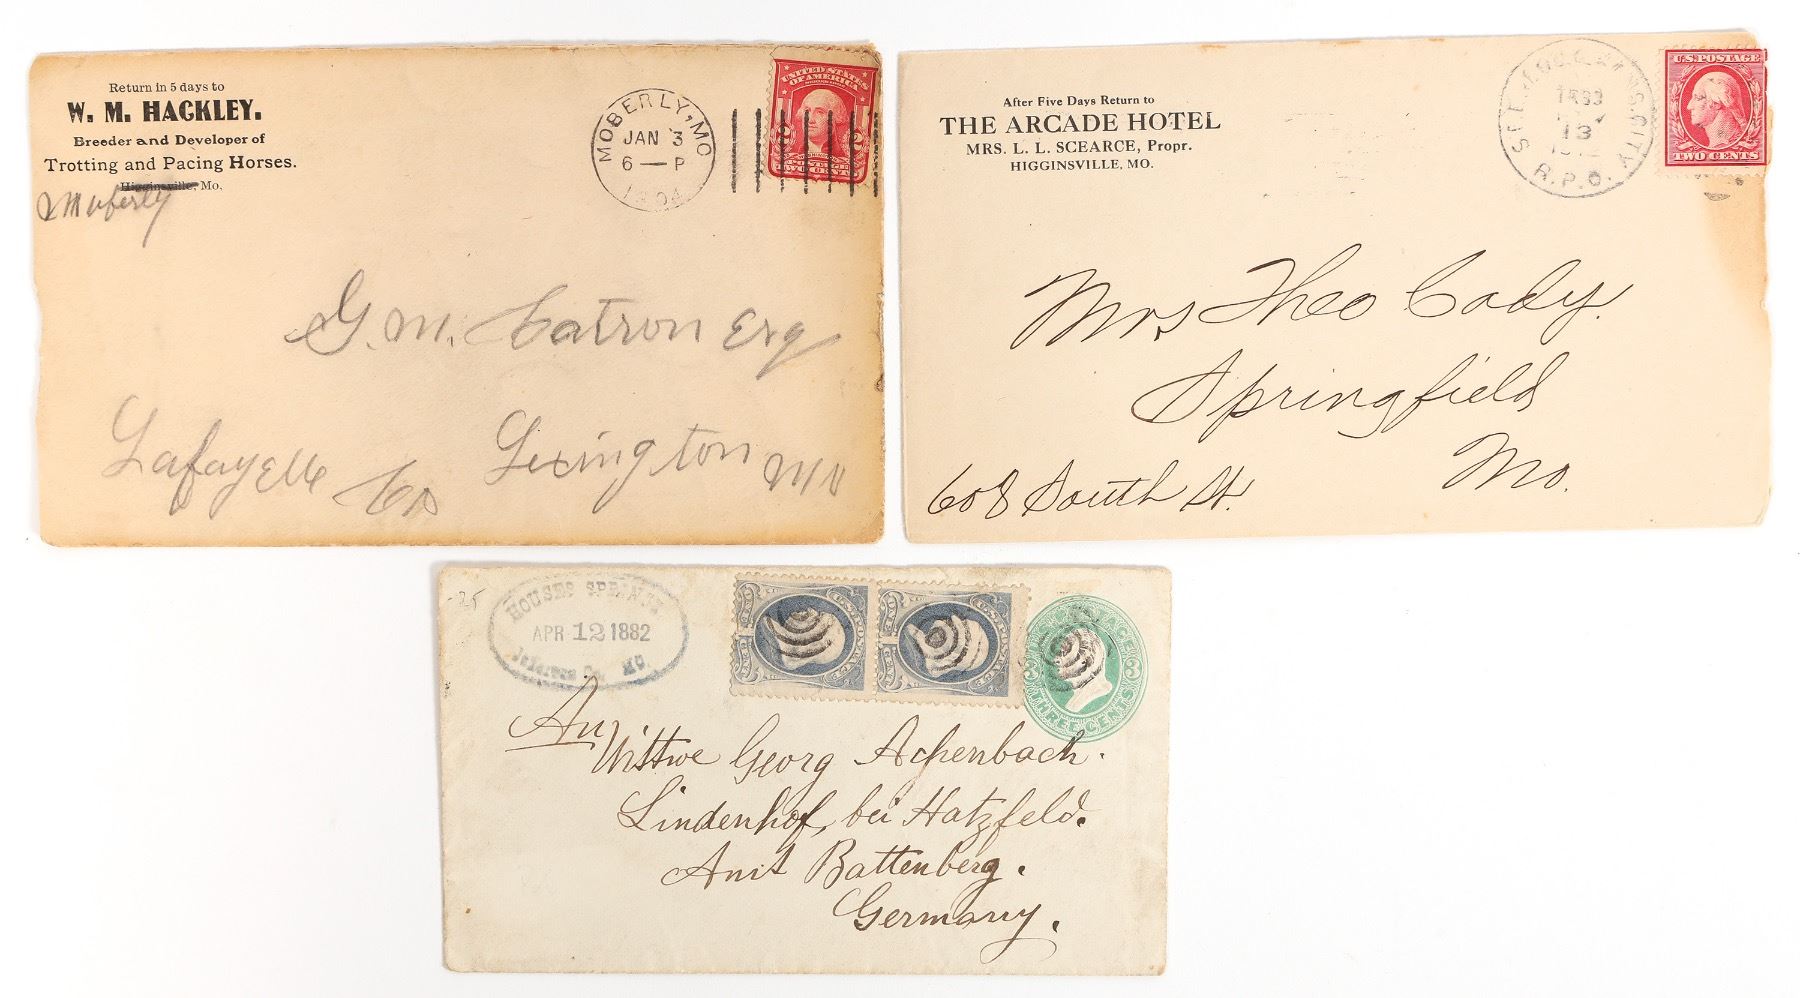 Return in 5 days to
W. M. HACKLEY.
Breeder and Developer of
Trotting and Pacing Horses.
Higginsville, Mo,
Moberly
MOBERLY, MO
JAN 3
6 — P
1904
UNITED STATES
OF AMERICA
2 2
TWO CENTS
G. M. Catron Esq
Lafayette Co Lexington Mo
After Five Days Return to
THE ARCADE HOTEL
MRS. L. L. SCEARCE, Propr.
HIGGINSVILLE, MO.
13
R.P.O.
U.S. POSTAGE
TWO CENTS
Mrs Theo Cody.
Springfield
Mo.
608 South St.
25
HOUSES SPRINGS
APR 12 1882
Jefferson Co. MO.
U.S. POSTAGE
ONE CENT
U.S. POSTAGE
ONE CENT
THREE CENTS
An
Wittwe Georg Achenbach.
Lindenhof, bei Hatzfeld.
Amt Battenberg.
Germany.